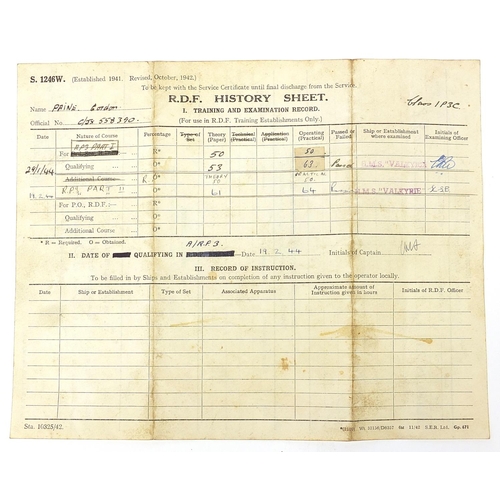 S. 1246W. (Established 1941. Revised, October, 1942.)
To be kept with the Service Certificate until final discharge from the Service.
R.D.F. HISTORY SHEET.
I. TRAINING AND EXAMINATION RECORD.
(For use in R.D.F. Training Establishments Only.)
Class 1P3C
Name PAINE, Gordon
Official No. C/JX 558390
Date Nature of Course Percentage Type of Set Theory (Paper) Technical (Practical) Application (Practical) Operating (Practical) Passed or Failed Ship or Establishment where examined Initials of Examining Officer
RP3 PART I
For R* 50 50
29/1/44 Qualifying O* 53 63 Passed H.M.S. "VALKYRIE"
Additional Course R* THEORY 50 PRACTICAL 50
19.2.44 RP3 PART II O* 61 64 H.M.S. "VALKYRIE"
For P.O., R.D.F. R*
Qualifying O*
Additional Course O*
* R = Required. O = Obtained.
A/RP3.
II. DATE OF QUALIFYING IN Date 19.2.44 Initials of Captain
III. RECORD OF INSTRUCTION.
To be filled in by Ships and Establishments on completion of any instruction given to the operator locally.
Date Ship or Establishment Type of Set Associated Apparatus Approximate Amount of Instruction given in hours Initials of R.D.F. Officer
Sta. 16325/42.
11/42 S.E.R. Ltd. Gp. 671